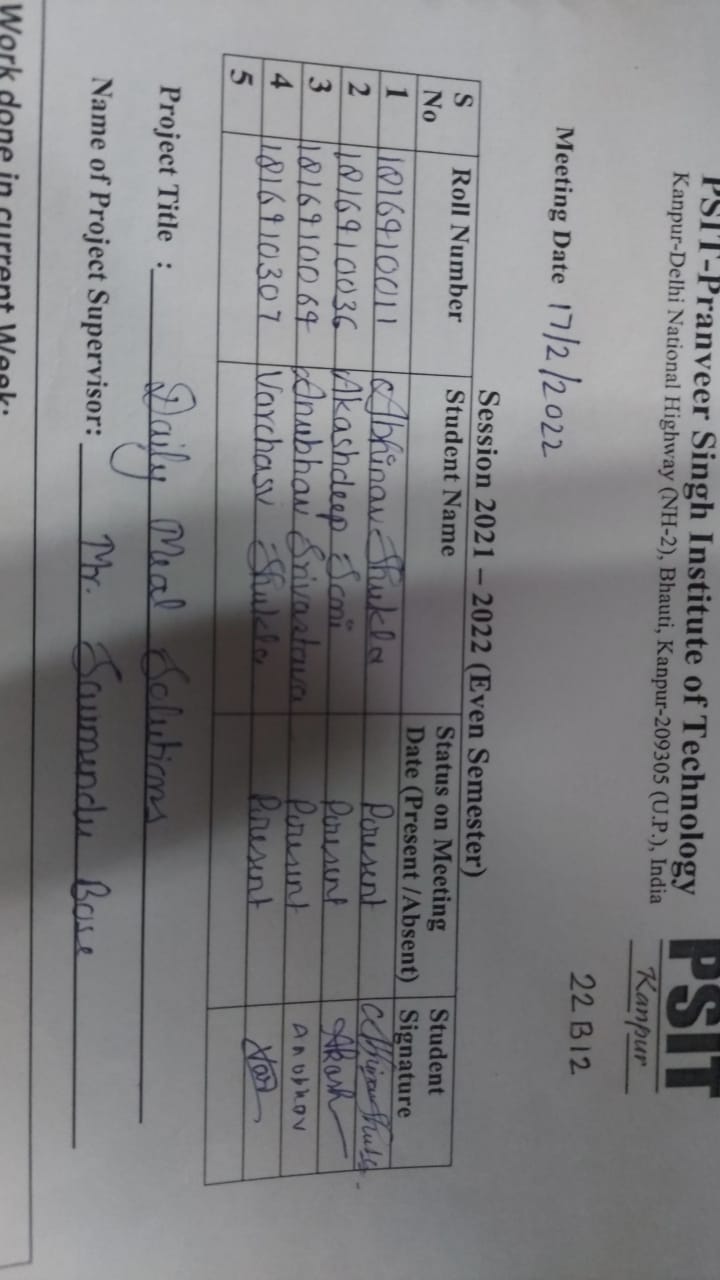 PSIT-Pranveer Singh Institute of Technology
Kanpur-Delhi National Highway (NH-2), Bhauti, Kanpur-209305 (U.P.), India
PSIT
Kanpur
22 B12
Meeting Date 17/2/2022
Session 2021 – 2022 (Even Semester)
S No Roll Number Student Name Status on Meeting Date (Present /Absent) Student Signature
1 1816910011 Abhinav Shukla Present Abhinav Shukla
2 1816910036 Akashdeep Soni Present Akash
3 1816910064 Anubhav Srivastava Present Anubhav
4 1816910307 Varchasvi Shukla Present
5
Project Title : Daily Meal Solutions
Name of Project Supervisor: Mr. Saumendu Bose
Work done in current Week: